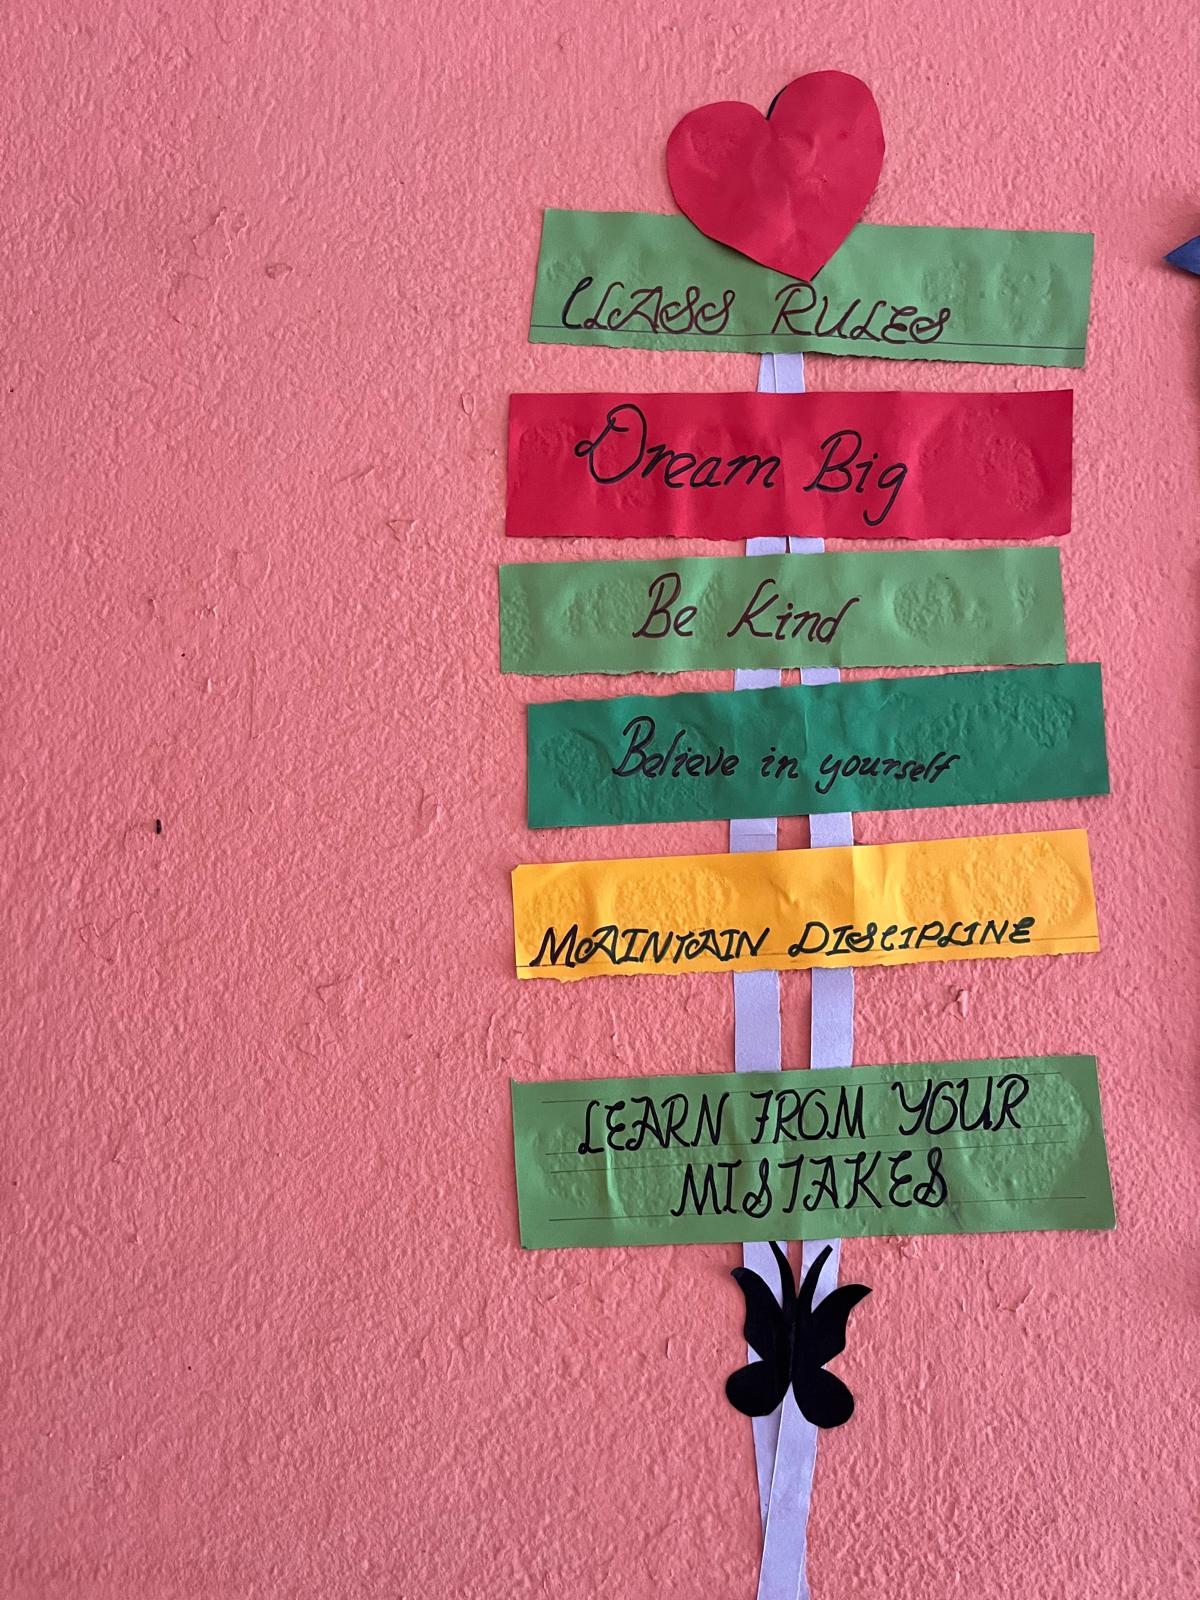 CLASS RULES
Dream Big
Be Kind
Believe in yourself
MAINTAIN DISCIPLINE
LEARN FROM YOUR
MISTAKES